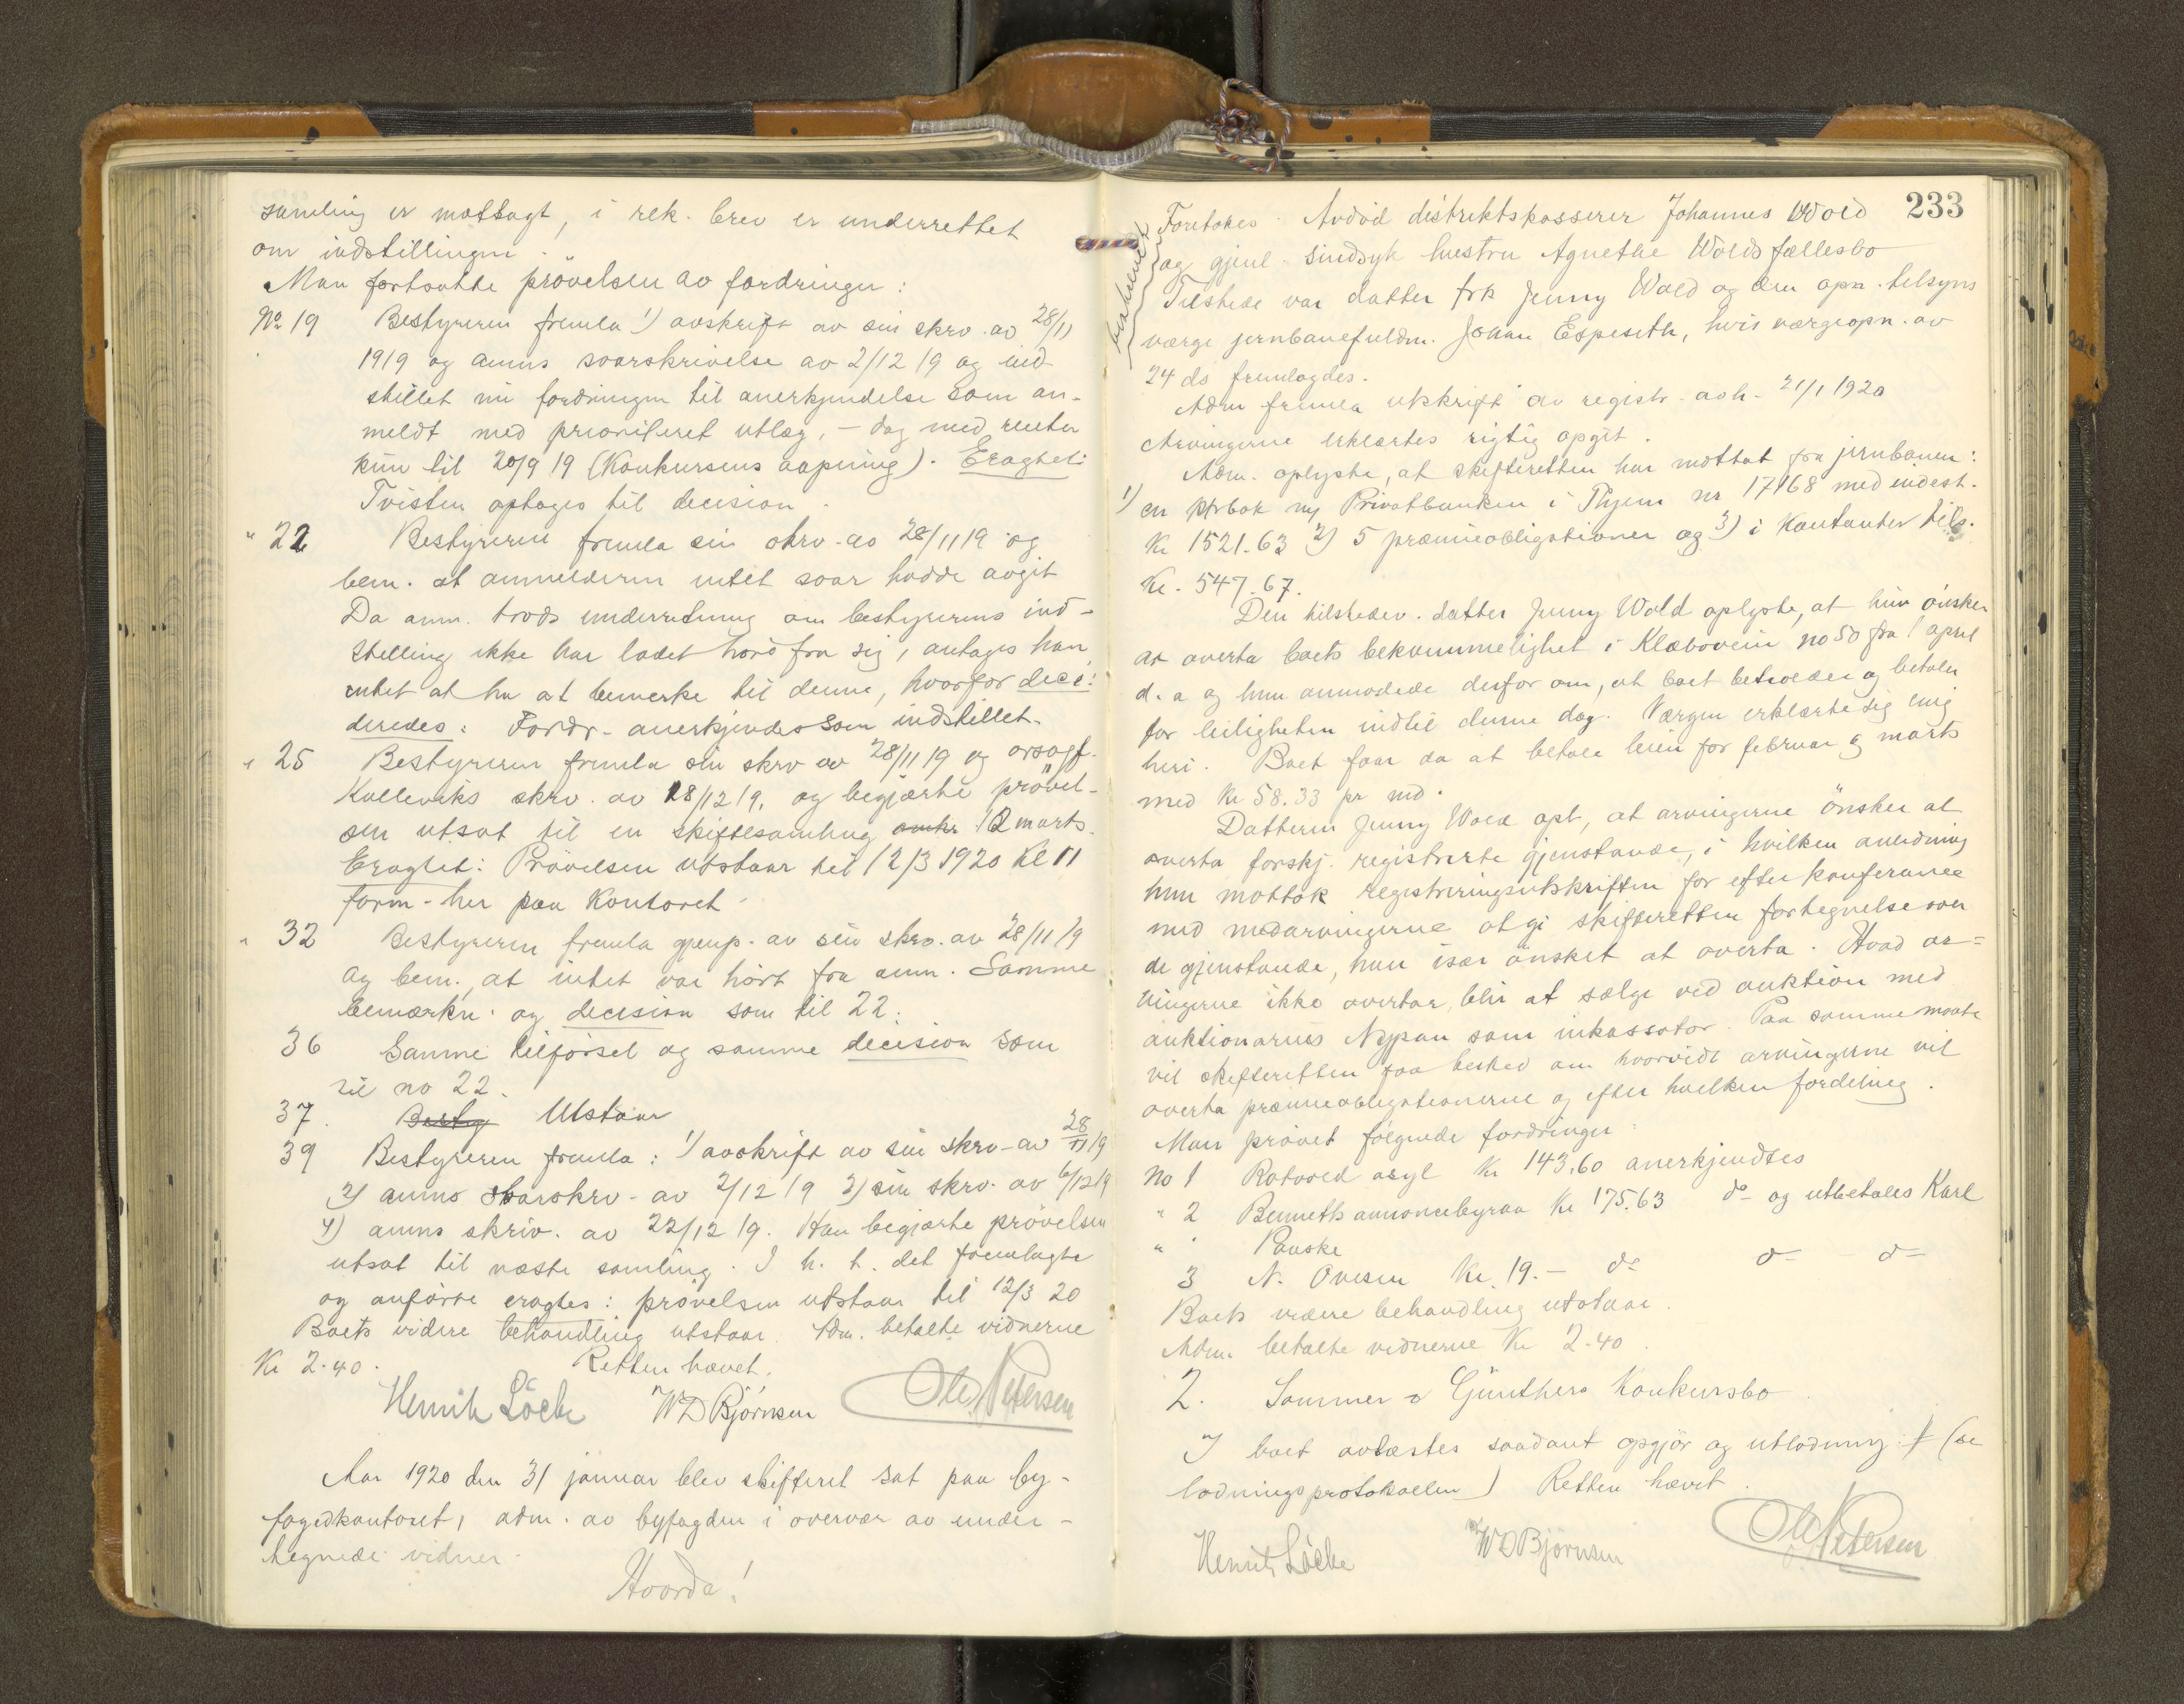 samling er mottagt, i rek. brev er underrettet
om indstillingen.
Man fortsatte prövelsen av fordringer:
No 19 Bestyreren fremla 1) avskrift av sin skrv. av 28/11
1919 og anms svarskrivelse av 2/12 19 og ind-
stillet nu fordringen til anerkjendelse som an-
meldt med prioriteret utlæg, – dog med renter
kun til 20/9 19 (Konkursens aapning). Eragtet:
Tvisten optages til decision.
" 22 Bestyreren fremla sin skrv. av 28/11 19 og
bem. at anmelderen intet svar hadde avgit
Da anm. trods underretning om bestyrerens ind-
stilling ikke har ladet höre fra sig, antages han
intet at ha at bemerke til denne, hvorfor deci:
deredes: Fordr. anerkjendes som indstillet.
" 25 Bestyreren fremla sin skrv av 28/11 19 og orsagf.
Kolleviks skrv. av 18/12 19, og begjærte prövel-
sen utsat til en skiftesamling 12 marts.
Eragtet: Prövelsen utstaar til 12/3 1920 Kl 11
form. her paa Kontoret.
" 32 Bestyreren fremla gjenp. av sin skrv. av 28/11 19
og bem., at intet var hört fra anm. Samme
bemærkn. og decision som til 22.
36 Samme tilförsel og samme decision som
til no 22.
37. Besty Utstaar
39 Bestyreren fremla: 1) avskrift av sin skrv. av 28/11 19
2) anms svarskrv. av 2/12 19 3) sin skrv. av 6/12 19
4) anms skriv. av 22/12 19. Han begjærte prövelsen
utsat til næste samling. I h. t. det fremlagte
og anförte eragtes: prövelsen utstaar til 12/3 20
Boets videre behandling utstaar. Adm. betalte vidnerne
Kr 2.40. Retten hævet.
Henrik Löcke W D Björnsen Ole Petersen
Aar 1920 den 31 januar blev skifteret sat paa by-
fogedkontoret, adm. av byfogden i overvær av under-
tegnede vidner.
Hvorda!
233
Foretokes Avdöd distriktskasserer Johannes Wold
og gjenl. sindsyk hustru Agnethe Wolds fællesbo
Tilstede var datter frk Jenny Wold og den opn. tilsyns
værge jernbanefuldm. Johan Espeseth, hvis værgeopn. av
24 ds fremlagdes.
Adm fremla utskrift av registr. avh. 21/1 1920
Arvingerne erklærtes rigtig opgit.
Adm. oplyste, at skifteretten har mottat fra jernbanen:
1) en ktrbok mj Privatbanken i Thjem nr 17168 med indest.
Kr 1521.63 2) 5 præmieobligationer og 3) i Kontanter tils.
Kr. 547.67.
Den tilstedev. datter Jenny Wold oplyste, at hun önsker
at overta boets bekvemmelighet i Klæbovein no 50 fra 1 april
d. a og hun anmodede derfor om, at boet beholder og betaler
for leiligheten indtil denne dag. Værgen erklærte sig enig
heri. Boet faar da at betale leien for februar og marts
med Kr 58.33 pr md.
Datteren Jenny Wold opl, at arvingerne önsker at
overta forskj. registrerte gjenstande, i hvilken anledning
hun mottok registreringsutskriften for efter konferance
med medarvingerne at gi skifteretten fortegnelse over
de gjenstande, hun især önsket at overta. Hvad ar=
vingerne ikke overtar, blir at sælge ved auktion med
auktionarius Nypan som inkassator. Paa samme maate
vil skifteretten faa besked om hvorvidt arvingerne vil
overta præmieobligationerne og efter hvilken fordeling.
Man prövet fölgende fordringer:
No 1 Rotvold asyl Kr 143.60 anerkjendtes
" 2 Bennetts annoncebyraa Kr 175.63 do og utbetales Karl
" " Panske
3 N. Ovesen Kr. 19.– do do do
Boets videre behandling utstaar.
Adm. betalte vidnerne Kr 2.40.
2. Sommer & Günthers Konkursbo.
I boet avlæstes saadant opgjör og utlodning: (se
lodningsprotokollen) Retten hævet.
Henrik Löcke W D Björnsen Ole Petersen